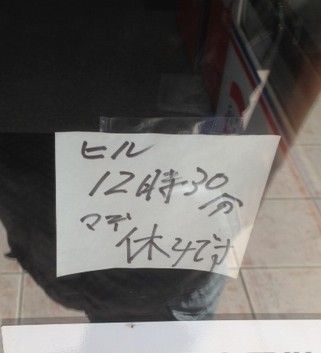 ヒル
12時30分
マデ
休みです